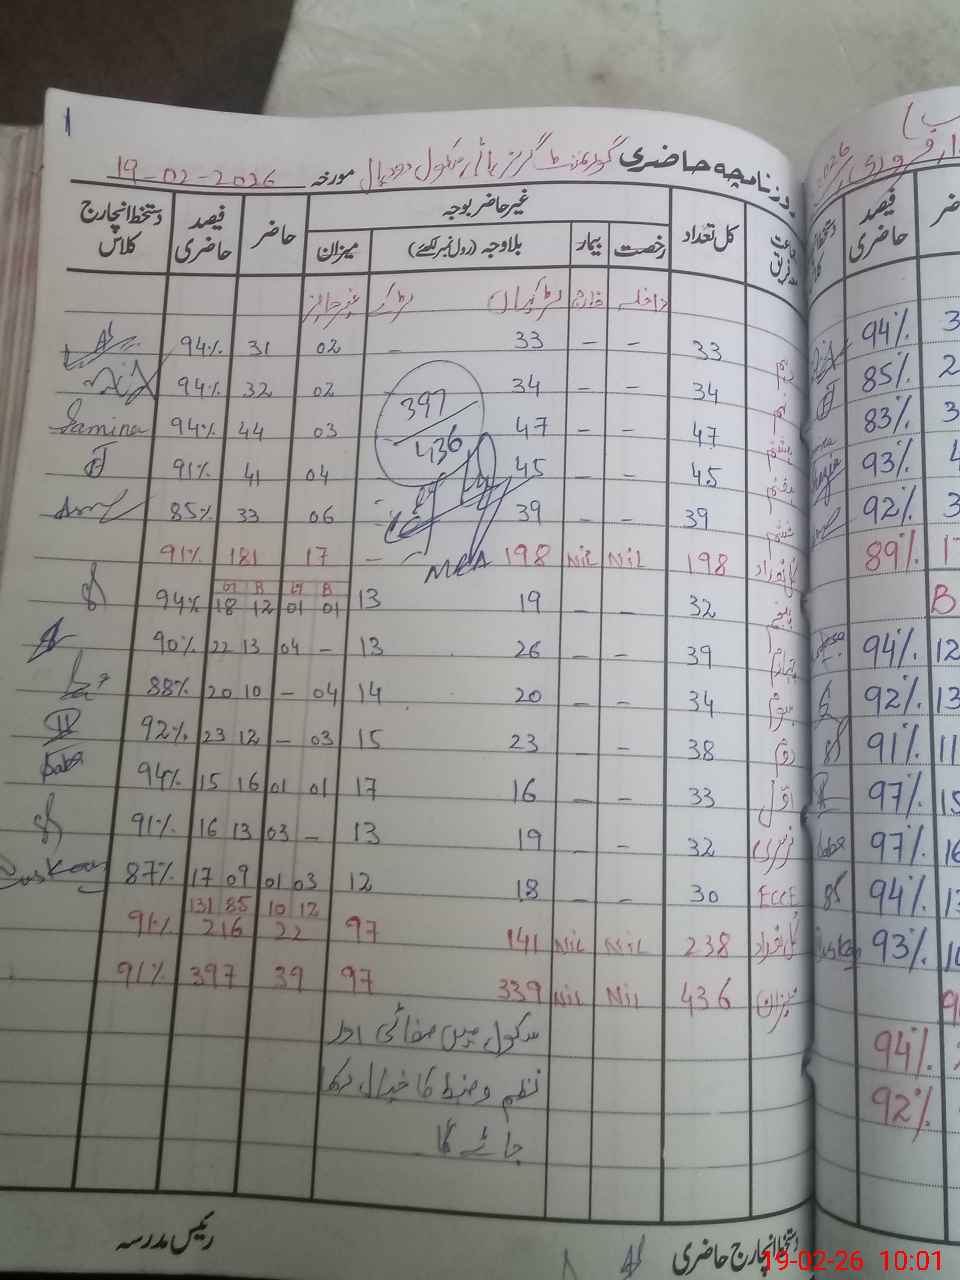 1
روزنامچہ حاضری گورنمنٹ گرلز ہائی سکول دودیال مورخہ 19-02-2026
جماعت کل تعداد غیر حاضر بوجہ حاضر فیصد حاضری دستخط انچارج کلاس
رخصت بیمار بلاوجہ (رول نمبر لکھئے) میزان
داخلہ خارج لڑکیاں لڑکے غیر حاضر
دہم 33 - - 33 - 02 31 94%
نہم 34 - - 34 02 32 94%
ہشتم 47 - - 47 03 44 94% Samina
ہفتم 45 - - 45 04 41 91%
ششم 39 - - 39 - 06 33 85%
397
436
کل تعداد 198 Nil Nil 198 - 17 181 91%
MEA
G B G B
پنجم 32 - - 19 13 01 01 12 18 94%
چہارم 39 - - 26 13 - 04 13 22 90%
سوم 34 - - 20 14 04 - 10 20 88%
دوم 38 - - 23 15 03 - 12 23 92%
اول 33 - - 16 17 01 01 16 15 94% Saba
نرسری 32 - - 19 13 - 03 13 16 91%
ECCE 30 - - 18 12 03 01 09 17 87%
12 10 85 131
کل تعداد 238 Nil Nil 141 97 22 216 91%
میزان 436 Nil Nil 339 97 39 397 91%
سکول میں صفائی اور
نظم و ضبط کا خیال رکھا
جائے گا
دستخط انچارج حاضری رئیس مدرسہ
فروری 2026
فیصد حاضری
94%
85%
83%
93%
92%
89%
B
94% 12
92% 13
91% 11
97% 15
97% 16
94% 13
93% 10
94%
92%
19-02-26 10:01